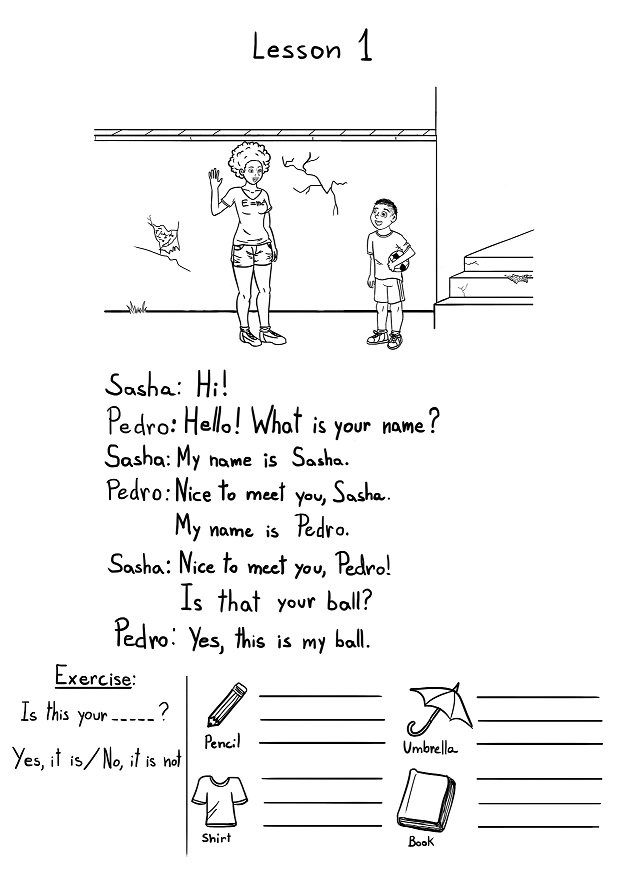 Lesson 1
E=mc²
Sasha: Hi!
Pedro: Hello! What is your name?
Sasha: My name is Sasha.
Pedro: Nice to meet you, Sasha.
My name is Pedro.
Sasha: Nice to meet you, Pedro!
Is that your ball?
Pedro: Yes, this is my ball.
Exercise:
Is this your _____?
Yes, it is/No, it is not
Pencil
Umbrella
Shirt
Book